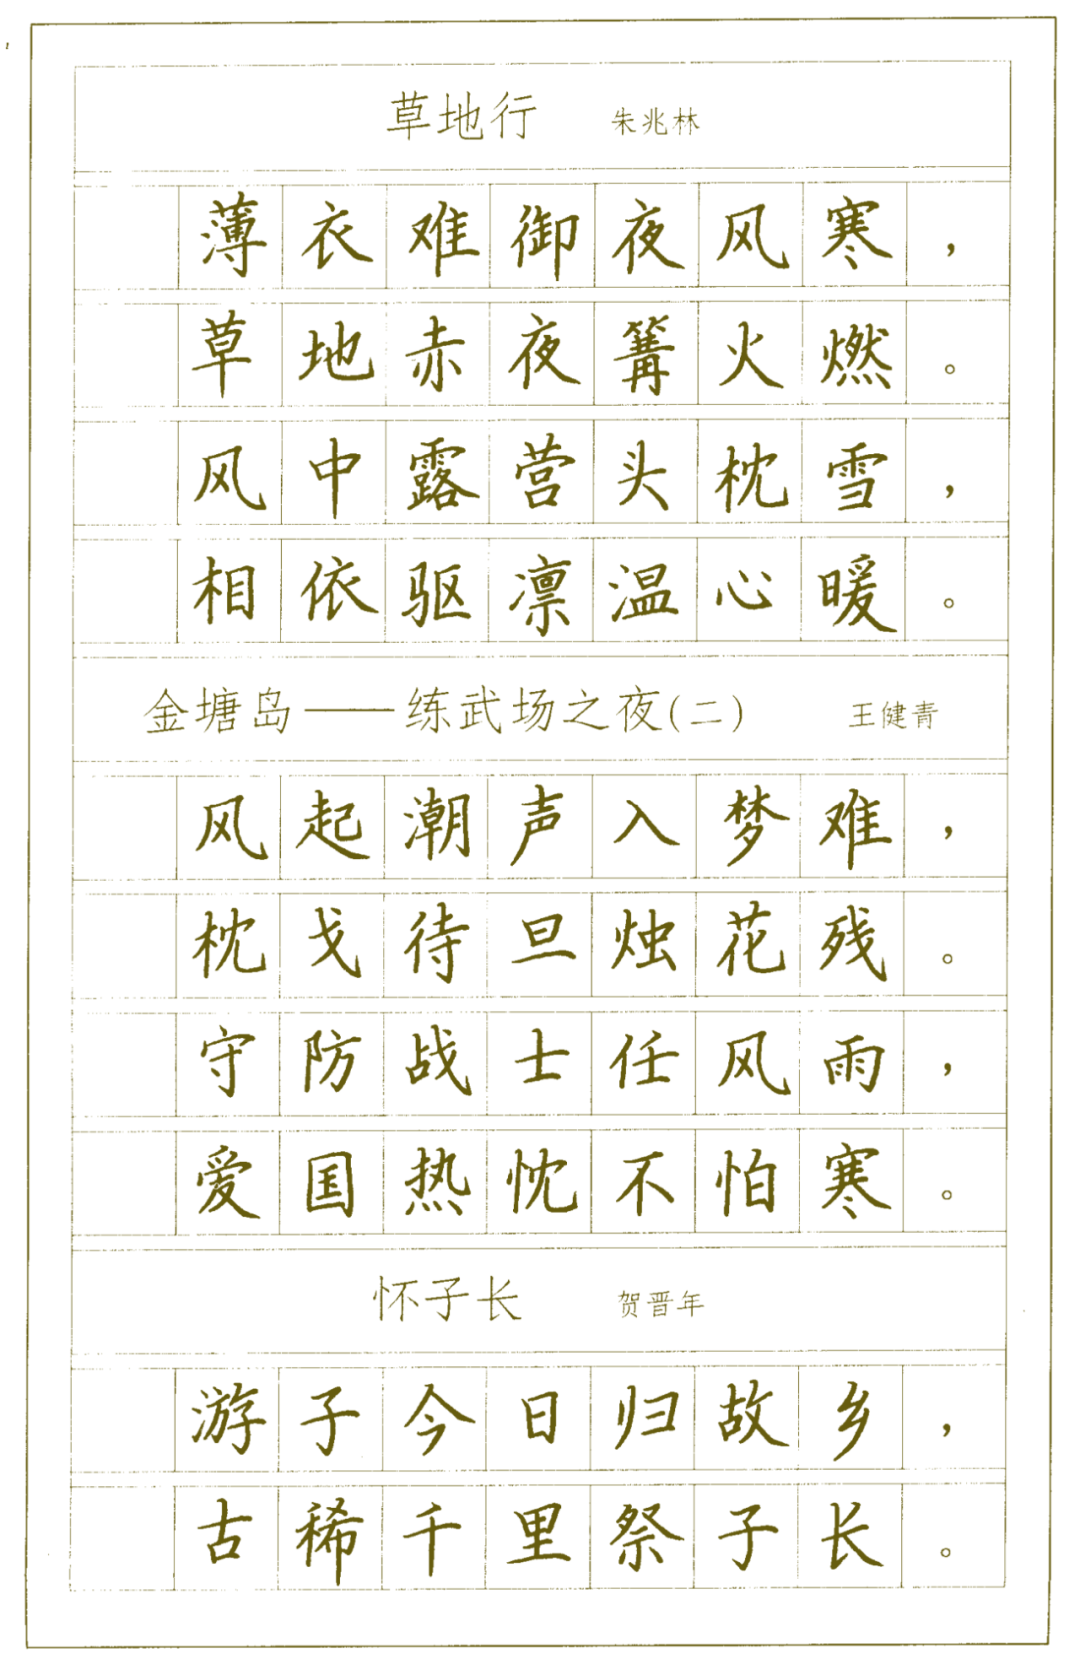 草地行 朱兆林
薄衣难御夜风寒，
草地赤夜篝火燃。
风中露营头枕雪，
相依驱凛温心暖。
金塘岛——练武场之夜(二) 王健青
风起潮声入梦难，
枕戈待旦烛花残。
守防战士任风雨，
爱国热忱不怕寒。
怀子长 贺晋年
游子今日归故乡，
古稀千里祭子长。